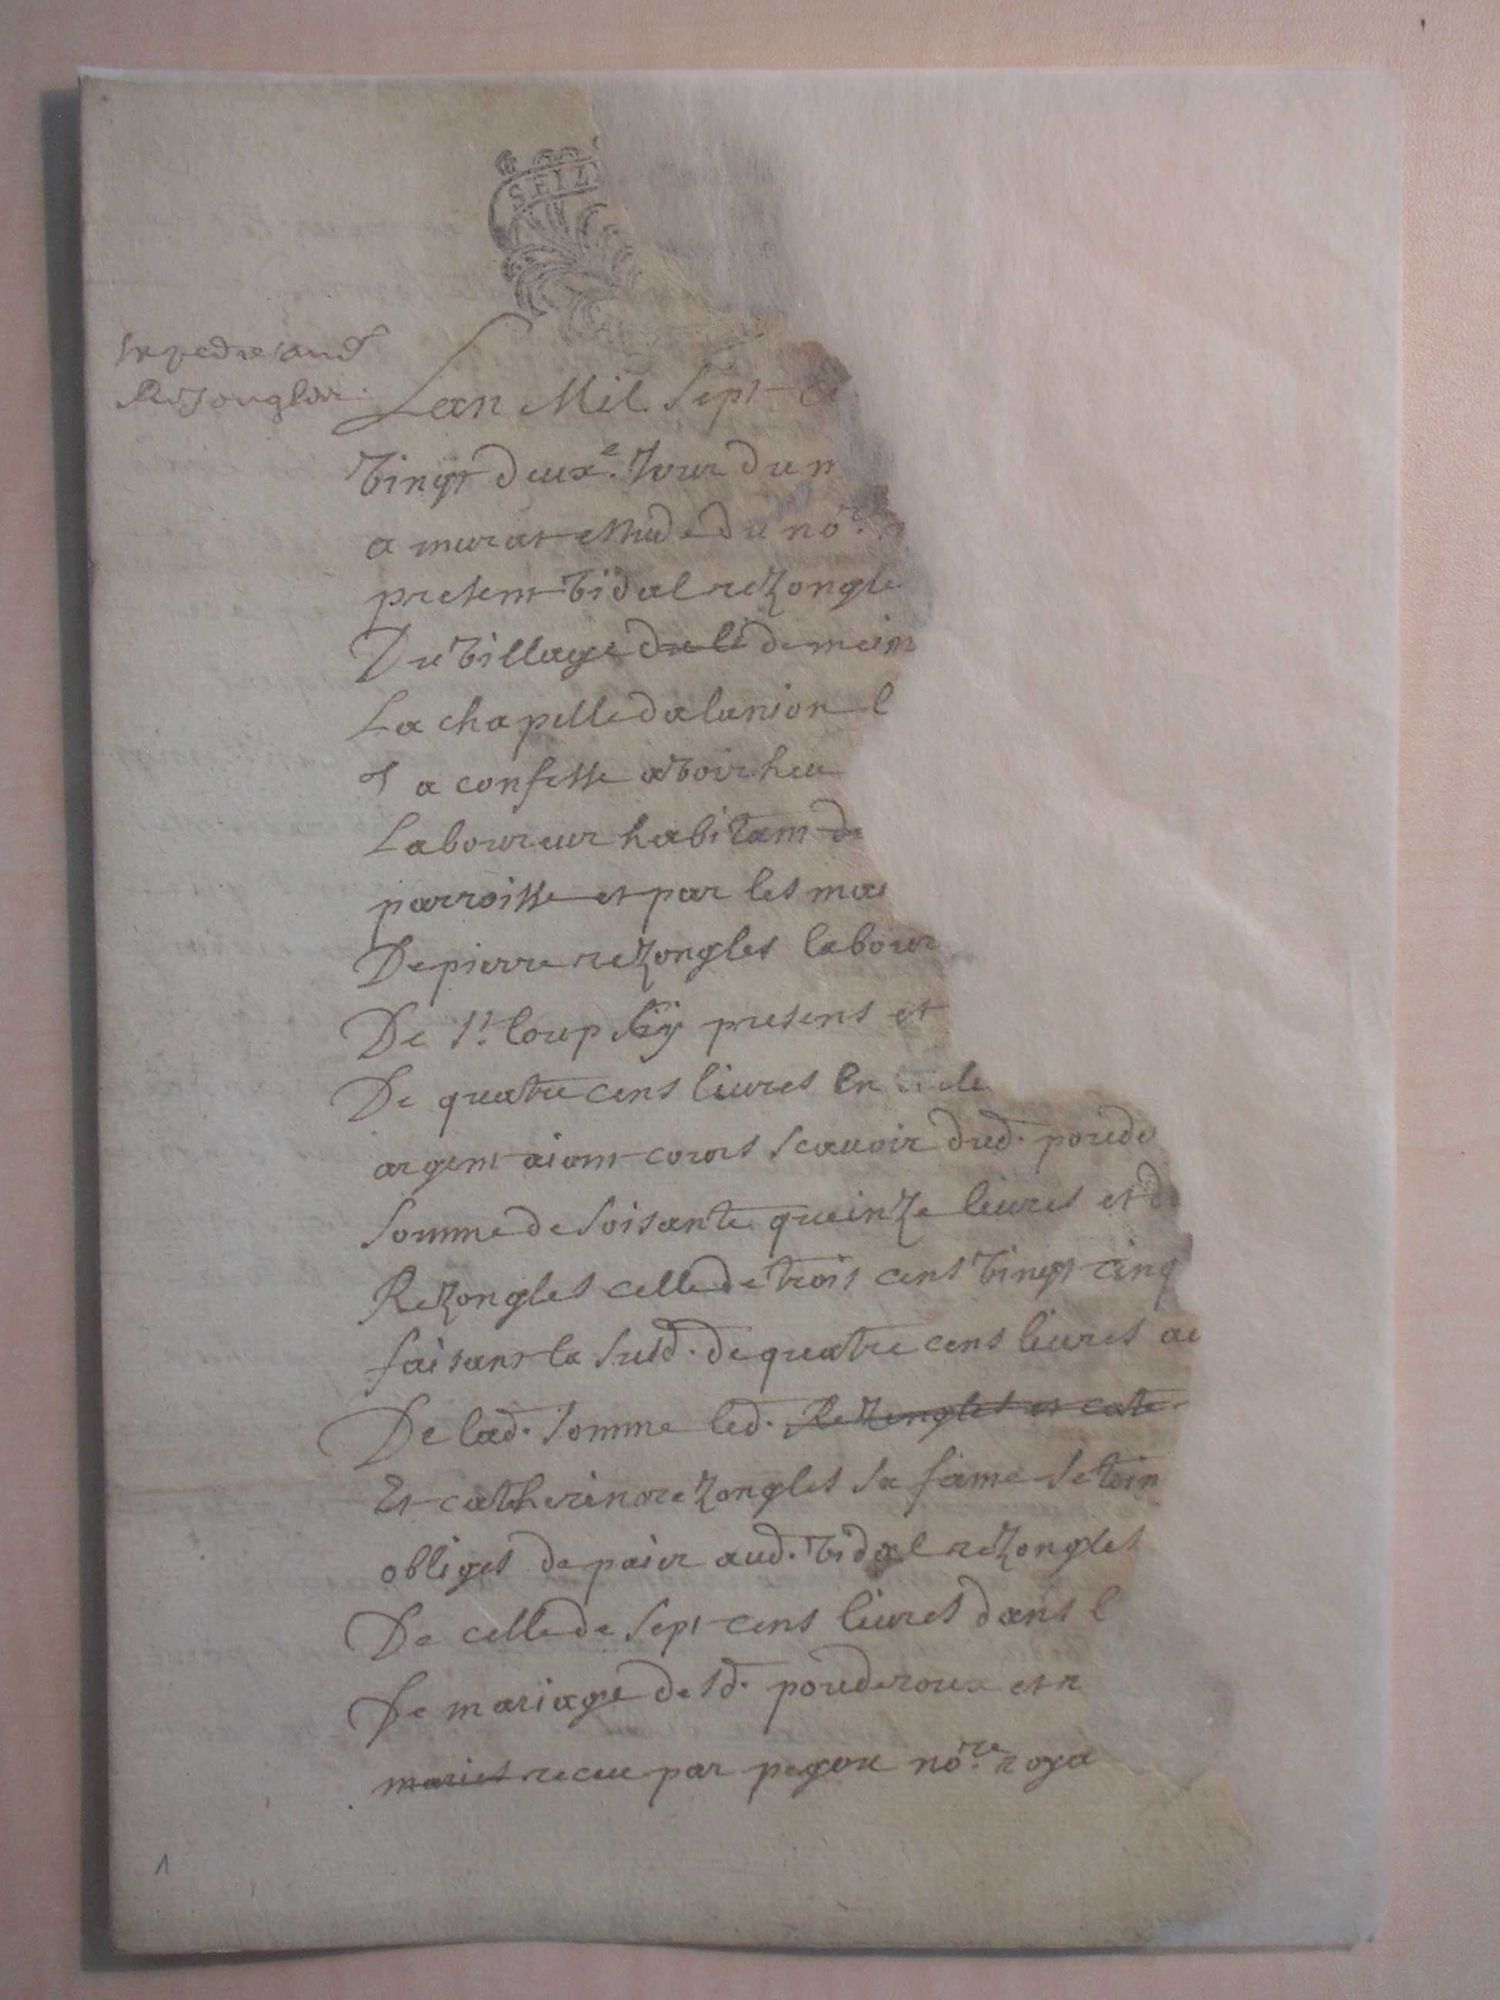 SEIZ
expedie aud
Rezongles
Lan Mil Sept ce
vingt deuxe. Jour du m
a murat estude du nore.
present vidal rezongle
Du village de le de mein
La chapelle dalanion l
et a confesse avoir heu
Laboureur habitant de
parroisse et par les mai
De pierre rezongles labour
De St. loup icy presens et
De quatre cens livres en
argent aiant cours scavoir dud. poude
somme de soisante quinze livres et d
Rezongles celle de trois cens vingt cinq
faisant la susd. de quatre cens livres ac
De lad. somme led. Rezongles et cate
Et catherine rezongles sa fame se toin
obliges de paier aud. vidal rezongles
De celle de sept cens livres dans l
De mariage desd. pouderoux et r
maries receu par pegou nore. roya
1